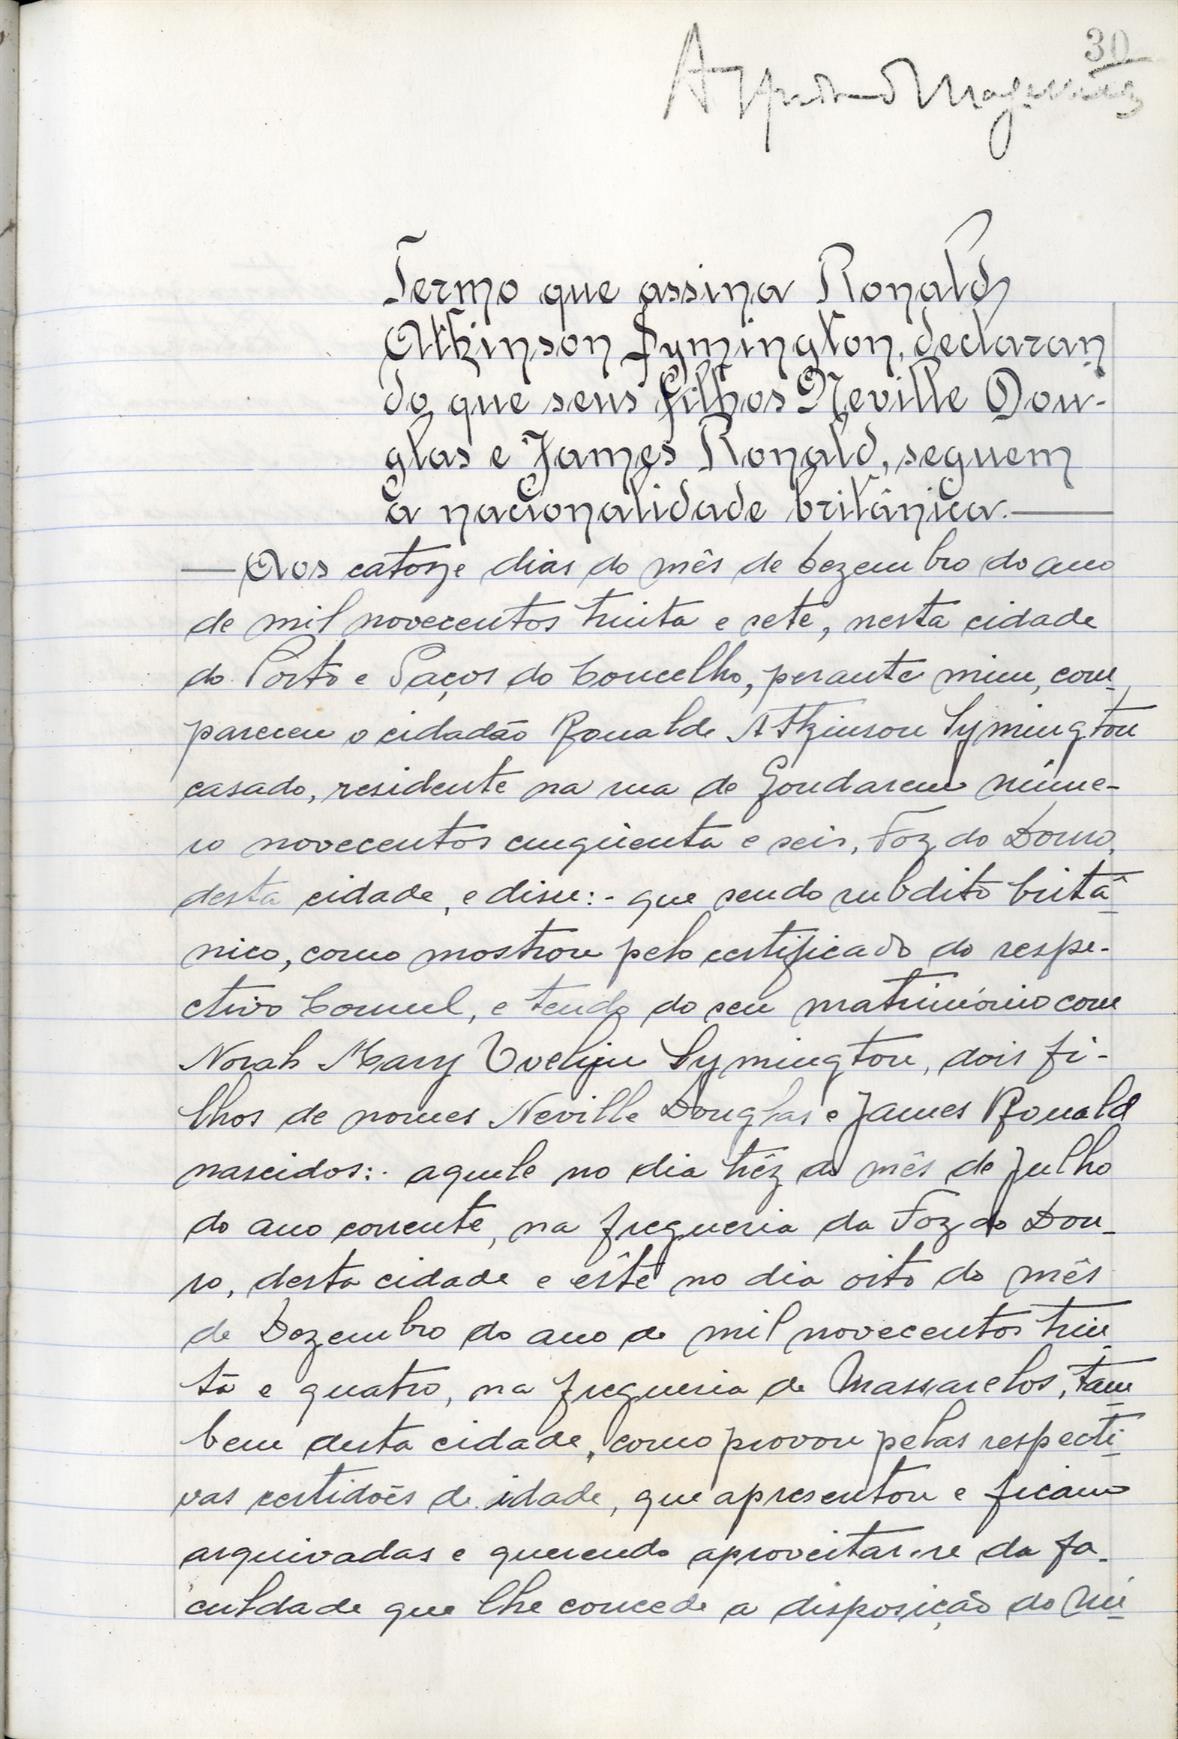 30
Alfredo Magalhães
Termo que assina Ronald
Atkinson Symington, declaran
do que seus filhos Neville Dou-
glas e James Ronald, seguem
a nacionalidade britânica.
— Aos catorze dias do mês de Dezembro do ano
de mil novecentos trinta e sete, nesta cidade
do Porto e Paços do Concelho, perante mim, com-
pareceu o cidadão Ronalde Atkinson Symington
casado, residente na rua de Gondarem núme-
ro novecentos cinqüenta e seis, Foz do Douro,
desta cidade, e disse:- que sendo subdito britâ-
nico, como mostrou pelo certificado do respe-
ctivo Consul, e tendo do seu matrimónio com
Norah Mary Symington, dois fi-
lhos de nomes Neville Douglas e James Ronald
nascidos:- aquele no dia três do mês de Julho
do ano corrente, na freguesia da Foz do Dou-
ro, desta cidade e êste no dia oito do mês
de Dezembro do ano de mil novecentos trin-
ta e quatro, na freguesia de Massarelos, tam-
bem desta cidade, como provou pelas respecti-
vas certidões de idade, que apresentou e ficam
arquivadas e querendo aproveitar-se da fa-
culdade que lhe concede a disposição do nú-